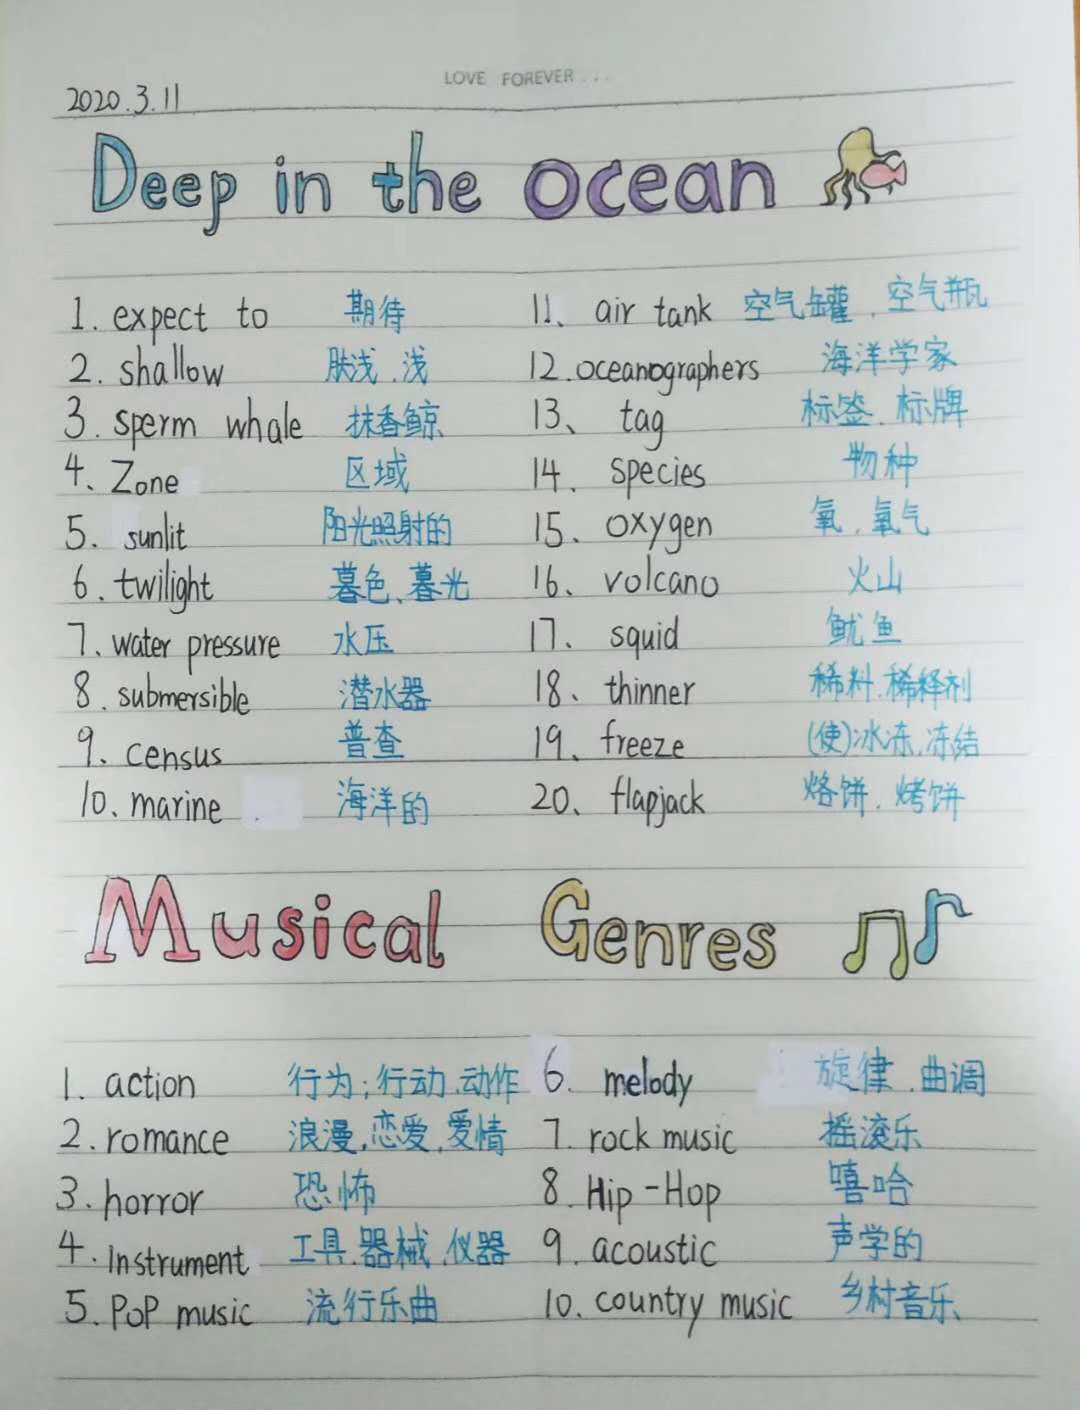 LOVE FOREVER...
2020.3.11
Deep in the ocean
1. expect to 期待 11、 air tank 空气罐、空气瓶
2. shallow 肤浅、浅 12. oceanographers 海洋学家
3. sperm whale 抹香鲸 13、 tag 标签、标牌
4、 Zone 区域 14. species 物种
5. sunlit 阳光照射的 15、 oxygen 氧、氧气
6. twilight 暮色、暮光 16、 volcano 火山
7. water pressure 水压 17、 squid 鱿鱼
8. submersible 潜水器 18、 thinner 稀料、稀释剂
9. census 普查 19、 freeze (使)冰冻、冻结
10. marine 海洋的 20、 flapjack 烙饼、烤饼
Musical Genres
1. action 行为;行动、动作 6. melody 旋律、曲调
2. romance 浪漫,恋爱,爱情 7. rock music 摇滚乐
3. horror 恐怖 8. Hip-Hop 嘻哈
4. Instrument 工具、器械、仪器 9. acoustic 声学的
5. PoP music 流行乐曲 10. country music 乡村音乐、